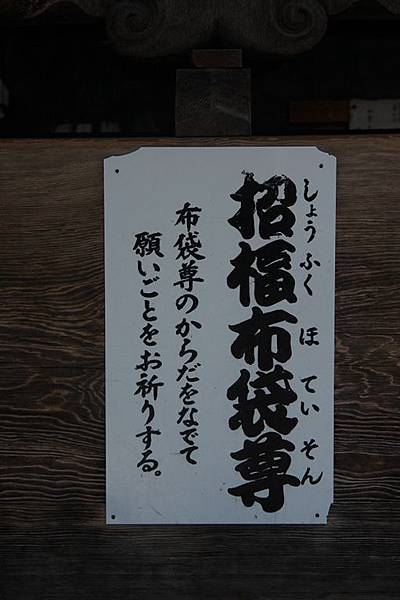 招福布袋尊
しょうふく ほていそん
布袋尊のからだをなでて
願いごとをお祈りする。